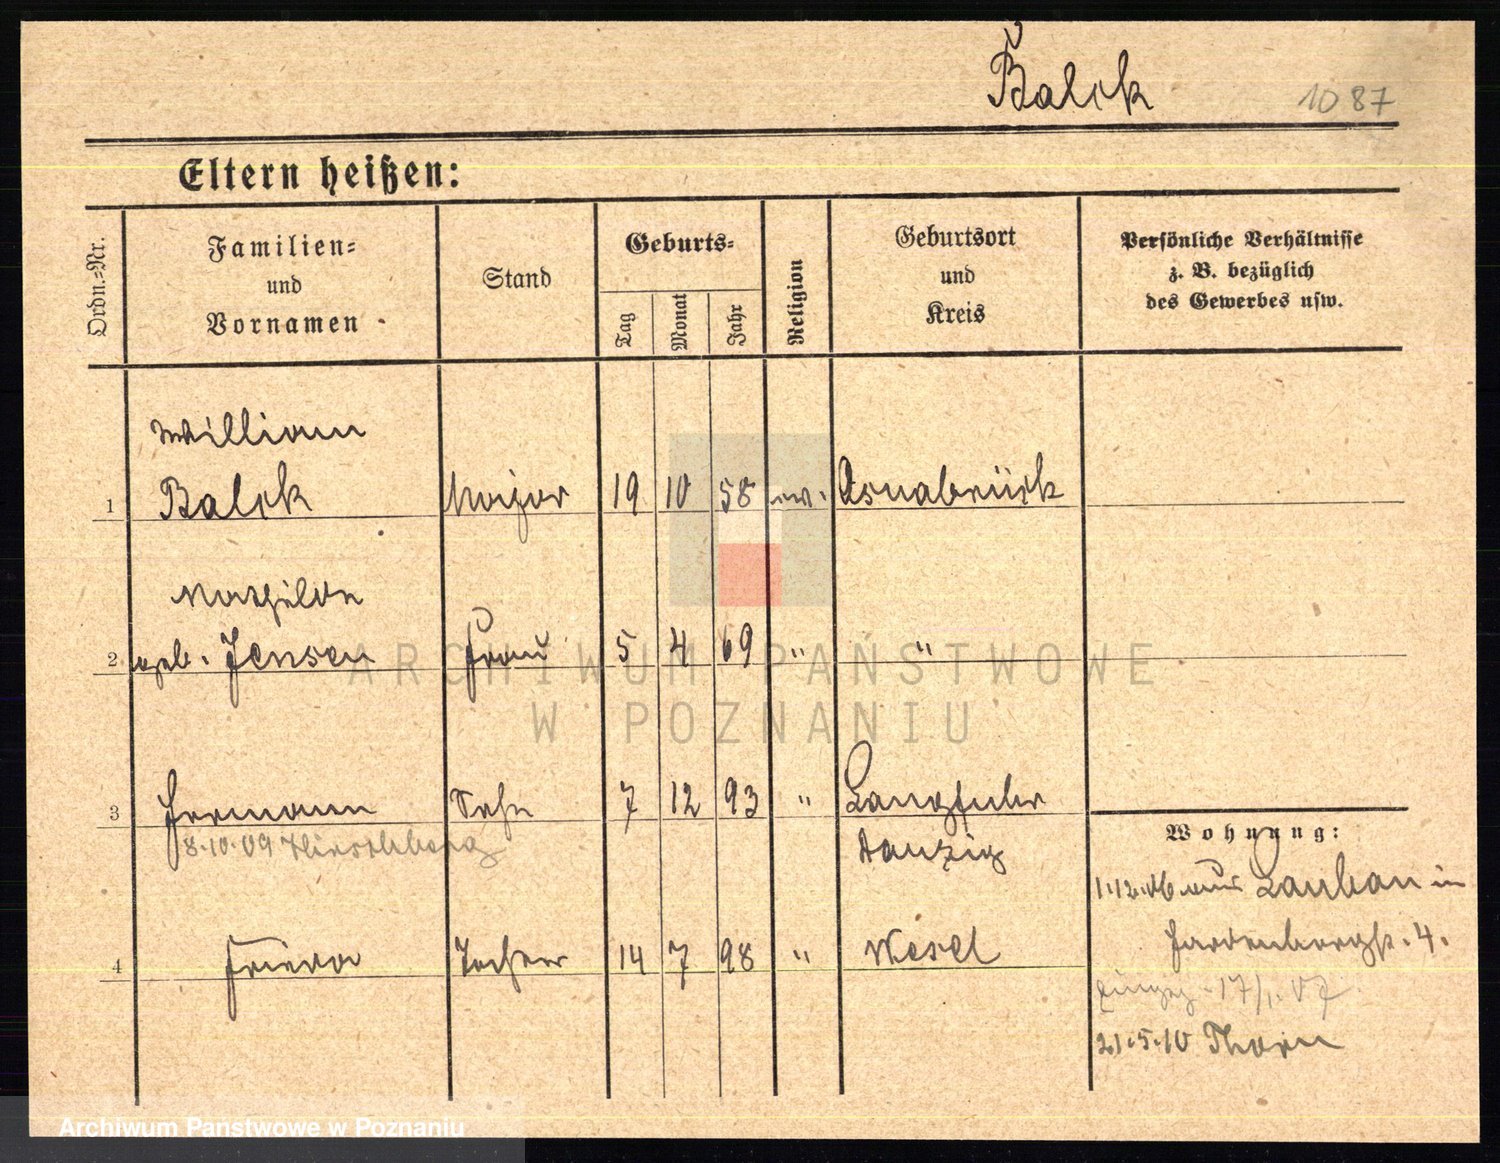 Balck 1087
Eltern heißen:
Ordn.-Nr.
Familien-
und
Vornamen
Stand
Geburts-
Tag
Monat
Jahr
Religion
Geburtsort
und
Kreis
Persönliche Verhältnisse
z. B. bezüglich
des Gewerbes usw.
William
1 Balck Major 19 10 58 ev. Osnabrück
Mathilde
2 geb. Jensen Frau 5 4 69 " "
3 Hermann Sohn 7 12 93 " Langfuhr
8.10.09 Hirschberg Danzig
Wohnung:
1.12.06 aus Lauban in
Hardenbergstr. 4.
4 Frieda Tochter 14 7 98 " Wesel
17/1.07
21.5.10 Thorn
ARCHIWUM PAŃSTWOWE
W POZNANIU
Archiwum Państwowe w Poznaniu